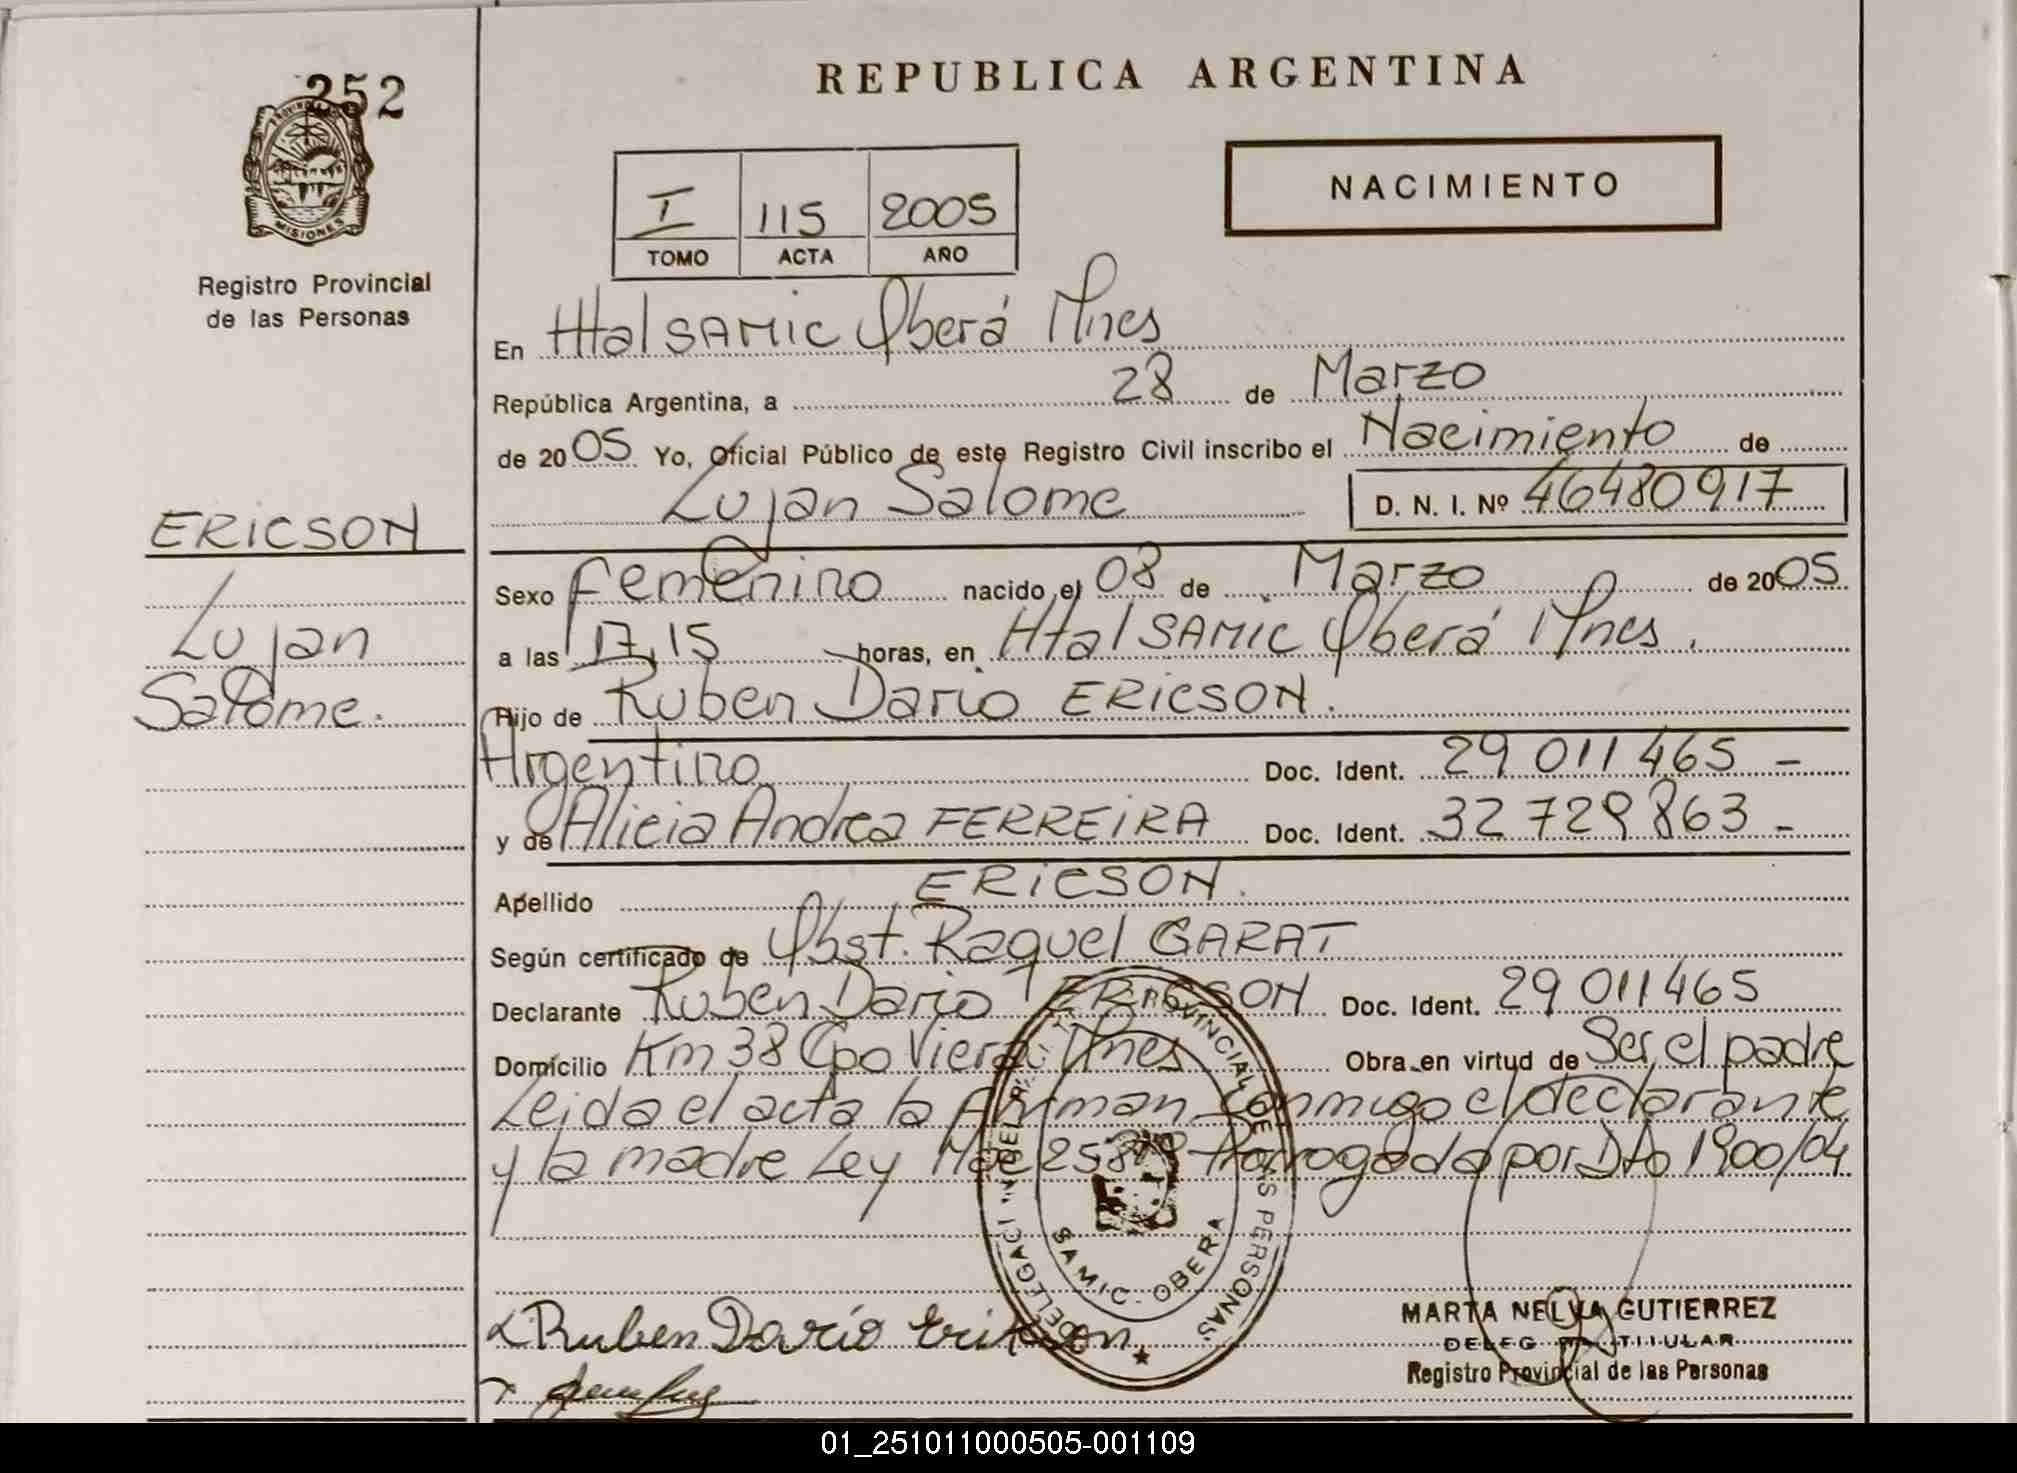 252
PROVINCIA DE
MISIONES
Registro Provincial
de las Personas
ERICSON
Lujan
Salome.
REPUBLICA ARGENTINA
NACIMIENTO
I 115 2005
TOMO ACTA AÑO
En Htal SAMIC Oberá Mnes
República Argentina, a 28 de Marzo
de 2005 Yo, Oficial Público de este Registro Civil inscribo el Nacimiento de
Lujan Salome D. N. I. Nº 46480917
Sexo Femenino nacido el 08 de Marzo de 2005
a las 17,15 horas, en Htal SAMIC Oberá Mnes.
Hijo de Ruben Dario ERICSON.
Argentino Doc. Ident. 29 011 465 -
y de Alicia Andrea FERREIRA Doc. Ident. 32 729 863 -
Apellido ERICSON.
Según certificado de Obst. Raquel GARAT
Declarante Ruben Dario ERICSON Doc. Ident. 29 011 465
Domicilio Km 38 Cpo Viera Mnes Obra en virtud de Ser el padre
Leida el acta la firman conmigo el declarante
y la madre Ley Nac 25819 Prorrogada por Dto 1900/04
PROVINCIAL DE LAS PERSONAS
SAMIC - OBERA
Ruben Dario Erikson
MARTA NELVA GUTIERREZ
DELEGADA TITULAR
Registro Provincial de las Personas
01_251011000505-001109